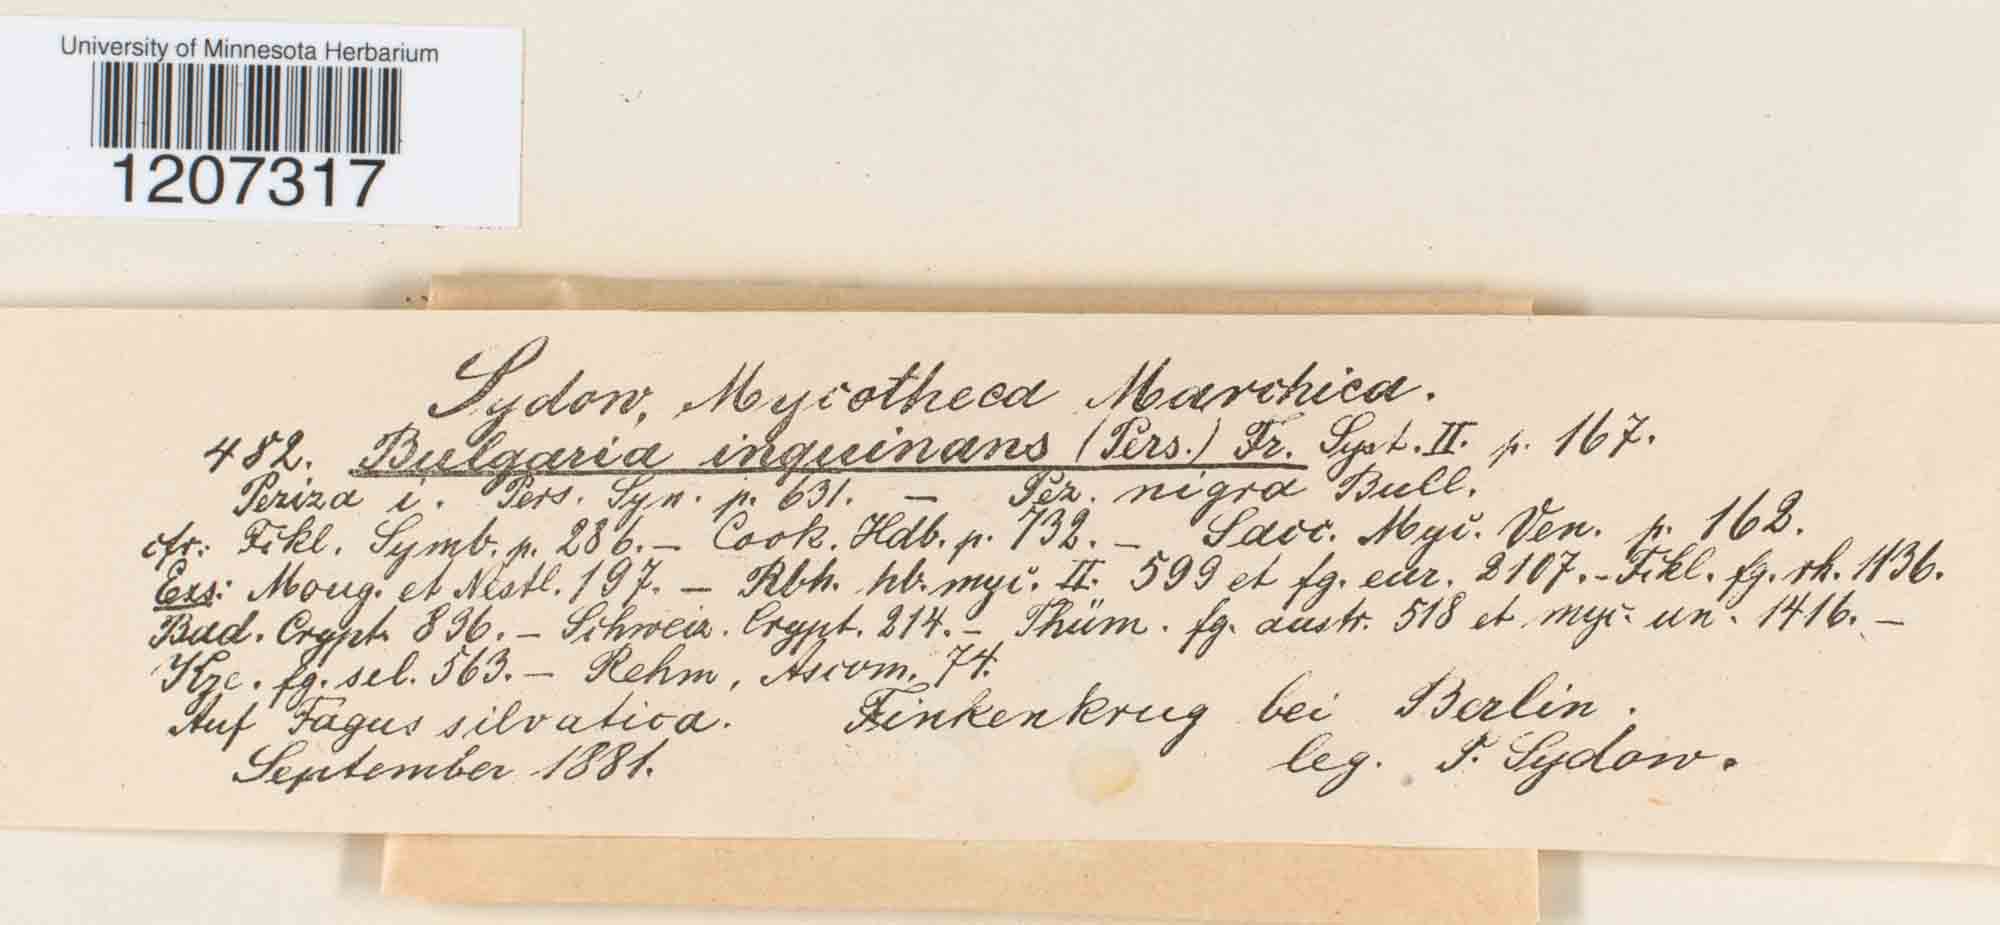 University of Minnesota Herbarium
1207317
Sydow, Mycotheca Marchica.
482. Bulgaria inquinans (Pers.) Fr. Syst. II. p. 167.
Peziza i. Pers. Syn. p. 631. — Pez. nigra Bull.
cfr: Fckl. Symb. p. 286. — Cook. Hdb. p. 732. — Sacc. Myc. Ven. p. 162.
Exs: Moug. et Nestl. 197. — Rbh. hb. myc. II. 599 et fg. eur. 2107. — Fckl. fg. rh. 1136.
Bad. Crypt. 836. — Schweiz. Crypt. 214. — Thüm. fg. austr. 518 et myc. un. 1416. —
Kze. fg. sel. 563. — Rehm, Ascom. 74.
Auf Fagus silvatica. Finkenkrug bei Berlin.
September 1881. leg. P. Sydow.